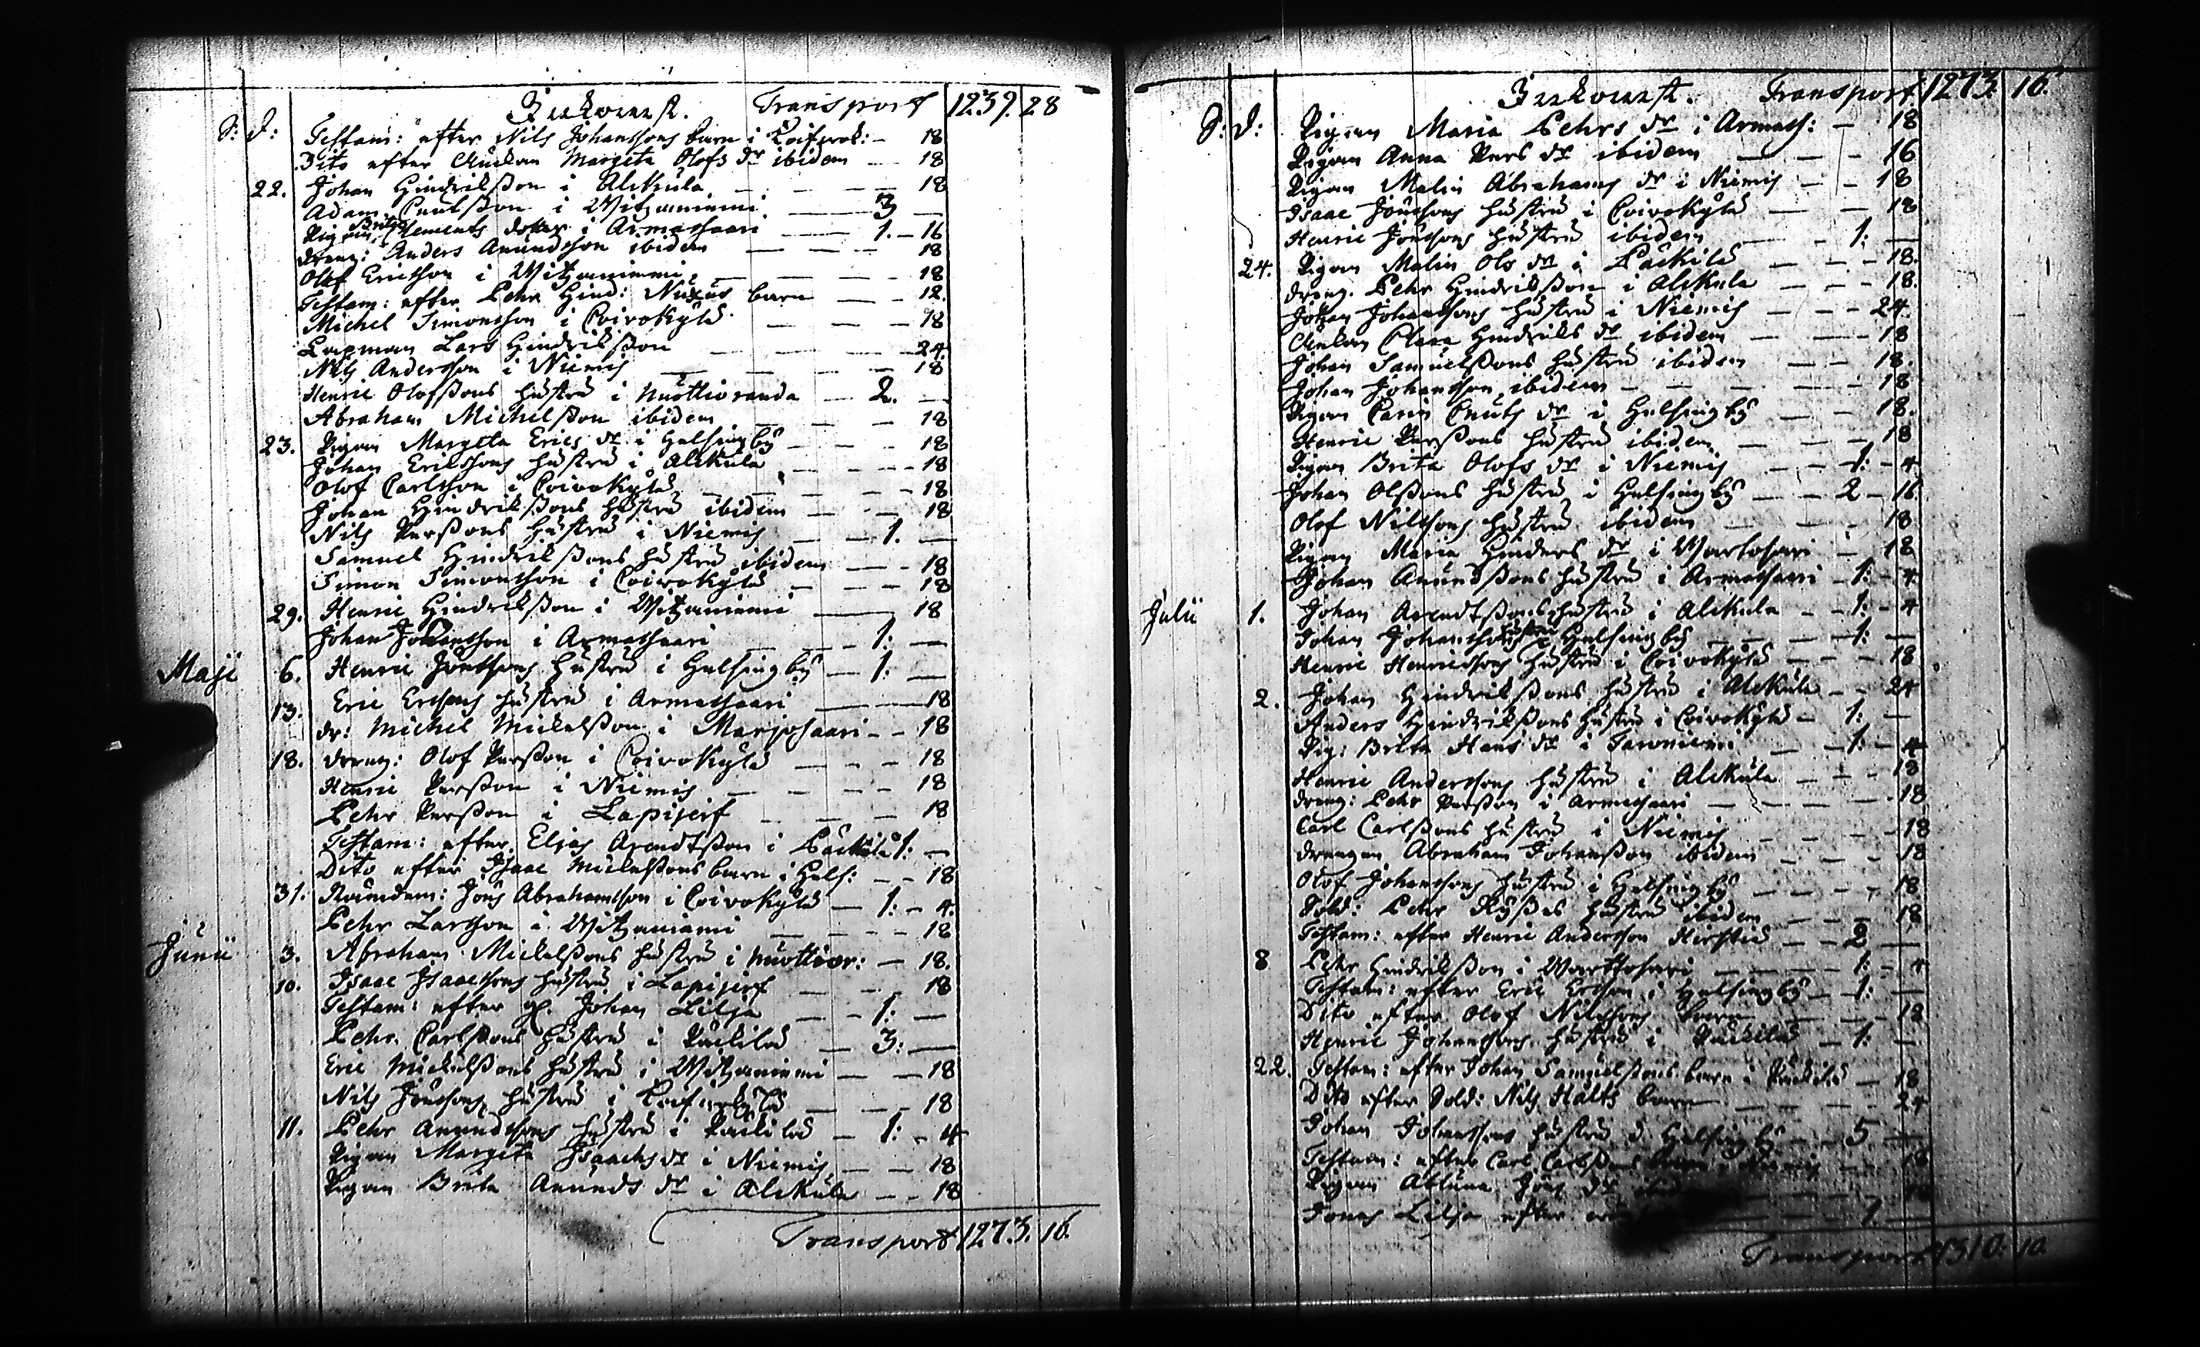 Inkomst. Transport 1239. 28
D: d: Testam: efter Nils Johanssons barn i Koifwok: — 18
Dito efter Änckan Margeta Olofs dr ibidem — 18
22. Johan Hindriksson i Alckula — 18
Adam Cnutsson i Witzaniemi — 3 —
Pigan Brita Clements dotter i Armassaari — 1. — 16
dreng: Anders Anundsson ibidem — 18
Olof Ericsson i Witzaniemi — 18
Testam: efter Pehr Hind: barn — 12.
Michel Simonsson i Coivokylä — 18
Lapman Lars Hindriksson — 24.
Nils Andersson i Niemis — 18
Henric Olofssons hustru i Muottioranda — 2. —
Abraham Michelsson ibidem — 18
23. Pigan Margeta Erics dr i Helsingby — 18
Johan Erikssons hustru i Alckula — 18
Olof Carlsson i Coivokylä — 18
Johan Hindrikssons hustru ibidem — 18
Nils Perssons hustru i Niemis — 1. —
Samuel Hindrikssons hustru ibidem — 18
Simon Simonsson i Coivokylä — 18
29. Henric Hindriksson i Witzaniemi — 18
Johan Johansson i Armassaari — 1: —
Maji 6. Henric Jönssons hustru i Helsingby — 1: —
Eric Ersons hustru i Armassaari — 18
13. dr: Michel Mickelsson i Marjosaari — 18
18. dreng: Olof Persson i Coivokylä — 18
Henric Persson i Niemis — 18
Pehr Persson i Lapijerf — 18
Testam: efter Elias Arendtsson i Päckilä 1: —
Dito efter Isaac Mickelssons barn i Hels: — 18
31. Nämdem: Jöns Abrahamsson i Coivokylä — 1: — 4.
Pehr Larsson i Witzaniemi — 18
Junii 3. Abraham Mickelssons hustru i Muottior: — 18.
10. Isaac Isaacssons hustru i Lapijerf — 18
Testam: efter gl. Johan Lilja — 1: —
Pehr Carlssons hustru i Päckilä — 3: —
Eric Mickelssons hustru i Witzaniemi — 18
Nils Jönssons hustru i — 18
11. Pehr Anundssons hustru i Päckilä — 1: — 4
Pigan Margeta Isaachs dr i Niemis — 18
Pigan Brita Anunds dr i Alckula — 18
Transport 1273. 16.
Inkomst. Transport 1273. 16.
D: d: Pigan Maria Pehrs dr i Armass: — 18
Pigan Anna Pers dr ibidem — 16
Pigan Malin Abrahams dr i Niemis — 18
Isaac Jönssons hustru i Coivokylä — 18
Henric Jönssons hustru ibidem — 1: —
24. Pigan Malin Ols dr i Päckilä — 18.
dreng. Pehr Hindriksson i Alckula — 18.
Johan Johanssons hustru i Niemis — 24.
Änkan Clara Hindriks dr ibidem — 18
Johan Samuelssons hustru ibidem — 18.
Johan Johansson ibidem — 18
Pigan Carin Cnuts dr i Helsingby — 18.
Henric Perssons hustru ibidem — 18
Pigan Brita Olofs dr i Niemis — 1: — 4
Johan Olssons hustru i Helsingby — 2 — 16
Olof Nilssons hustru ibidem — 18
Pigan Maria Hinders dr i — 18
Johan Anundssons hustru i Armassaari — 1: — 4
Julii 1. Johan Arendtssons hustru i Alckula — 1: — 4
Johan Johanssons hustru i Helsingby — 1: —
Henric Henricssons hustru i Coivokylä — 18
2. Johan Hindrikssons hustru i Alckula — 24
Anders Hindrikssons hustru i Coivokylä — 1: —
Pig: Brita Hans dr i — 1: — 4
Henric Anderssons hustru i Alckula — 18
dreng: Pehr Persson i Armassaari — 18
Carl Carlssons hustru i Niemis — 18
drengen Abraham Johansson ibidem — 18
Olof Johanssons hustru i Helsingby — 18
Sold: Pehr hustru ibidem — 18
Testam: efter Henric Andersson — 2 —
8 Pehr Hindriksson i — 1: — 4
Testam: efter Eric Ersson i Helsingby — 1: —
Dito efter Olof Nilssons barn — 18
Henric Johanssons hustru i Päckilä — 1: —
22. Testam: efter Johan Samuelssons barn i Päckilä — 18
Dito efter Sold: Nils Hälts barn — 24
Johan Johanssons hustru i Helsingby — 5 —
Testam: efter Carl Carlssons barn i Niemis — 18
Pigan
Jonas Lilja efter — 1 —
Transport 1310. 10.